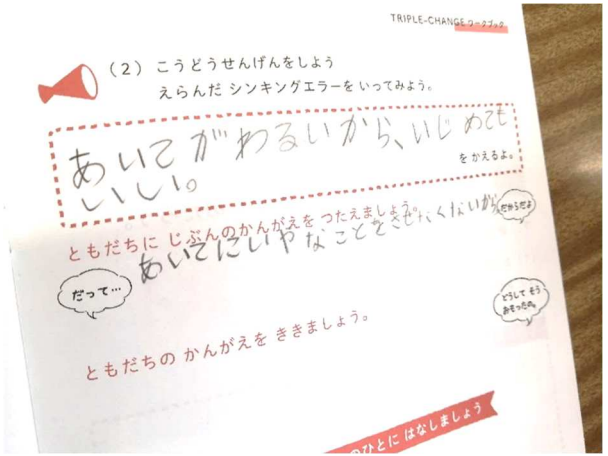 TRIPLE-CHANGE ワークブック
(2) こうどうせんげんをしよう
えらんだ シンキングエラーを いってみよう。
あいてがわるいから、いじめても
いいい。
をかえるよ。
ともだちに じぶんのかんがえを つたえましょう。
だからだよ
あいてにいやなことをさせたくないから
だって…
どうして そう
おもったの。
ともだちの かんがえを ききましょう。
のひとに はなしましょう